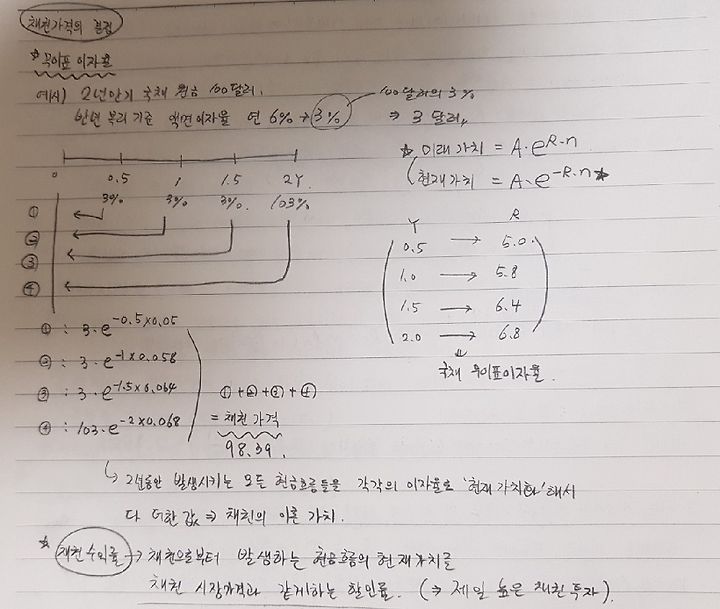 채권가격의 결정
* 무이표 이자율
예시) 2년만기 국채 원금 100달러.
반년 복리 기준 액면이자율 연 6% → 3%
100달러의 3%
⇒ 3달러
* 미래가치 = A·e^R·n
현재가치 = A·e^-R·n *
0 0.5 1 1.5 2Y.
① 3% 3% 3% 103%
②
③
④
Y R
0.5 → 5.0
1.0 → 5.8
1.5 → 6.4
2.0 → 6.8
국채 무이표이자율.
① : 3·e^-0.5×0.05
② : 3·e^-1×0.058
③ : 3·e^-1.5×0.064
④ : 103·e^-2×0.068
①+②+③+④
= 채권가격
98.39.
↳ 2년동안 발생시키는 모든 현금흐름들을 각각의 이자율로 '현재가치화' 해서
다 더한 값 ⇒ 채권의 이론 가치.
* 채권수익률 → 채권으로부터 발생하는 현금흐름의 현재가치를
채권 시장가격과 같게하는 할인률. (→ 제일 높은 채권 투자).